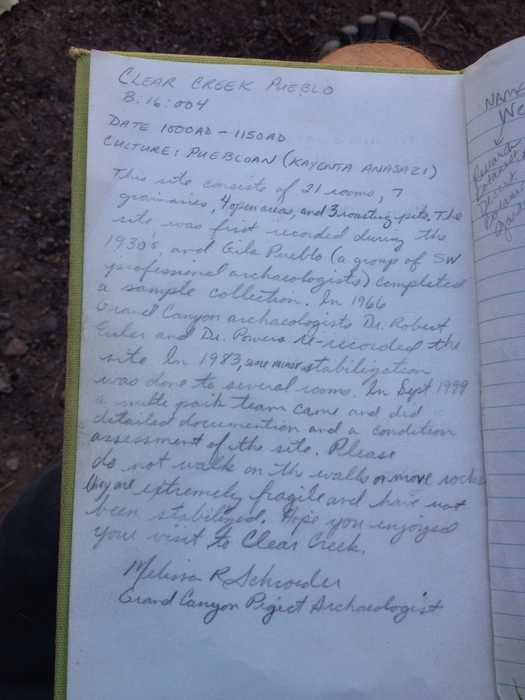 CLEAR CREEK PUEBLO
B:16:004
DATE 1000AD - 1150AD
CULTURE: PUEBLOAN (KAYENTA ANASAZI)
This site consists of 21 rooms, 7
grainaries, 4 open areas, and 3 roasting pits. The
site was first recorded during the
1930s, and Gila Pueblo (a group of SW
professional archaeologists) completed
a sample collection. In 1966
Grand Canyon archaeologists Dr. Robert
Euler and Dr. Powers re-recorded the
site. In 1983, some minor stabilization
was done to several rooms. In Sept 1999
a multi park team came and did
detailed documention and a condition
assessment of the site. Please
do not walk on the walls or move rocks
they are extremely fragile and have not
been stabilized. Hope you enjoyed
your visit to Clear Creek.
Melissa R Schroeder
Grand Canyon Project Archaeologist
NAME